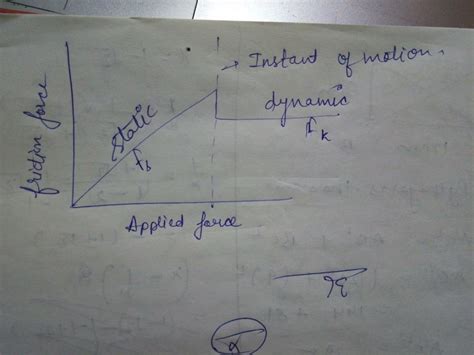 Instant of motion.
dynamic
fk
static
fs
friction force
Applied force